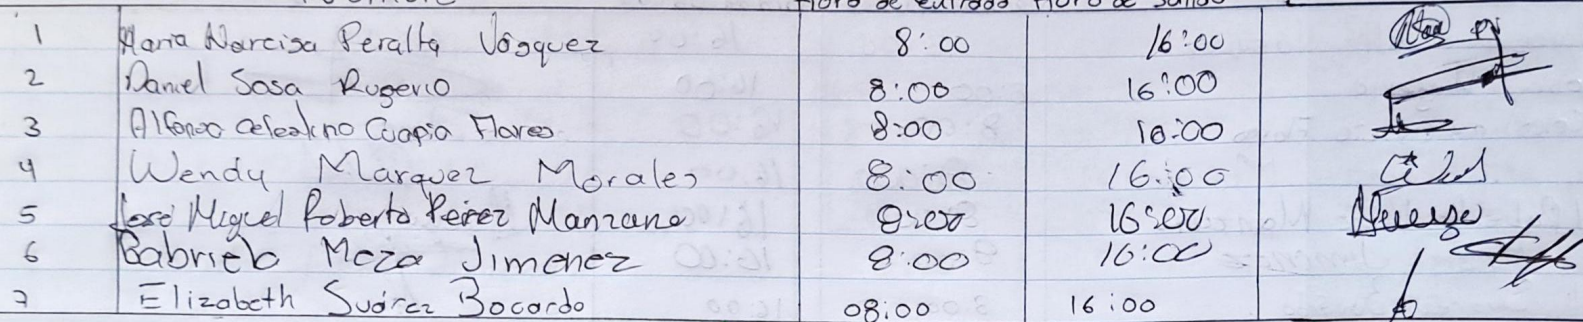 Hora de entrada Hora de salida
1 Maria Narcisa Peralta Vásquez 8:00 16:00
2 Daniel Sosa Rugerio 8:00 16:00
3 Alfonso Celestino Cuapia Flores 8:00 16:00
4 Wendy Marquez Morales 8:00 16:00
5 José Miguel Roberto Peréz Manzano 8:00 16:00
6 Gabriela Meza Jimenez 8:00 16:00
7 Elizabeth Suárez Bocardo 08:00 16:00